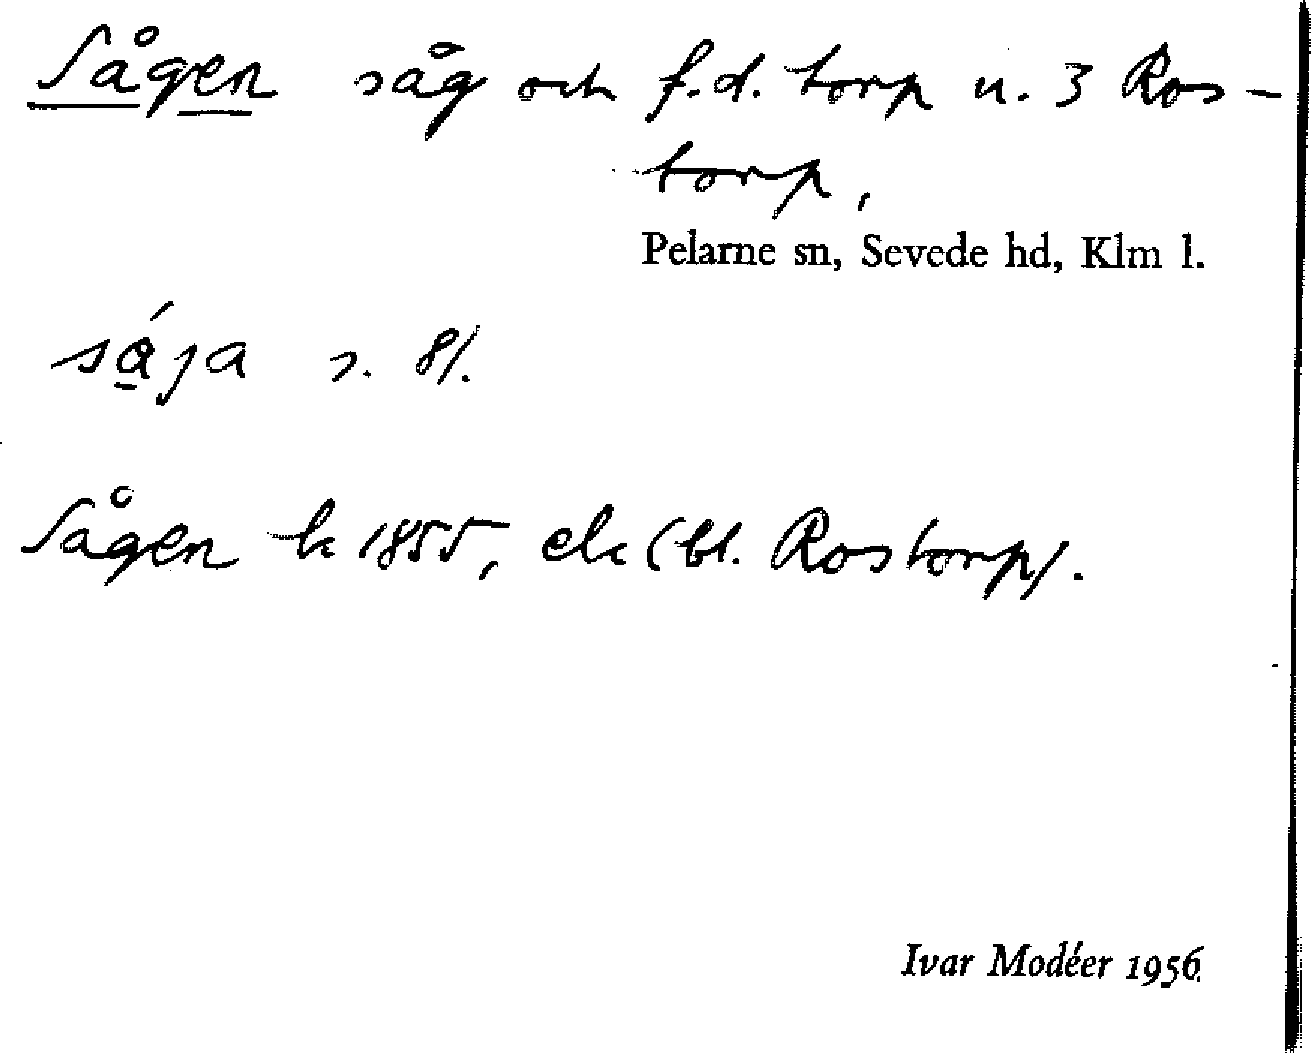 Sågen såg och f.d. torp u. 3 Ros-
torp,
Pelarne sn, Sevede hd, Klm l.
sá̱ja s. 8/.
Sågen k 1855, ek (bl. Rostorp/.
Ivar Modéer 1956